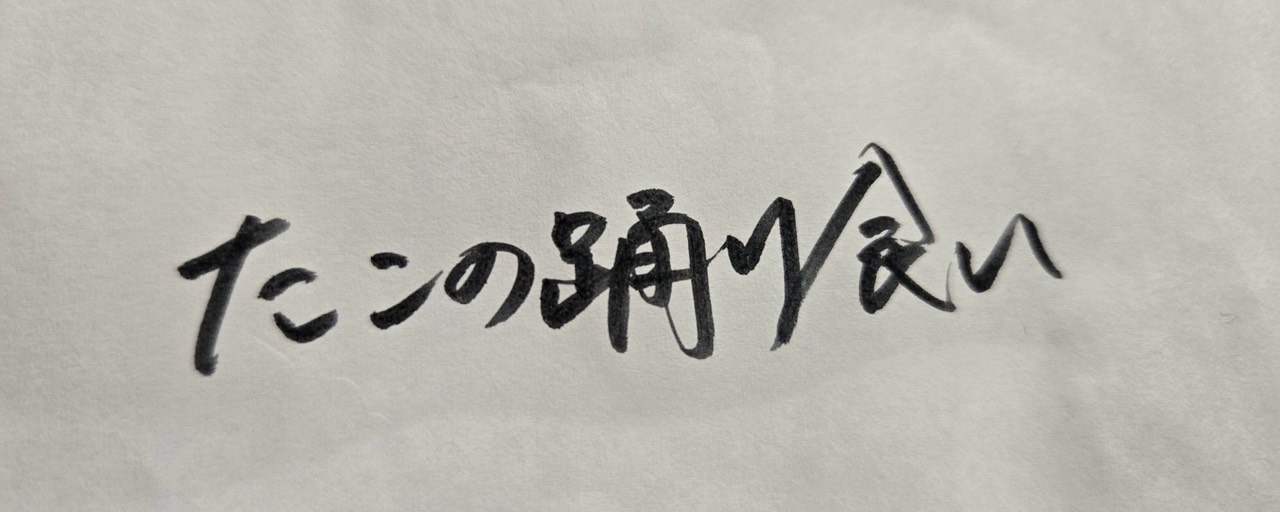 たこの踊り食い